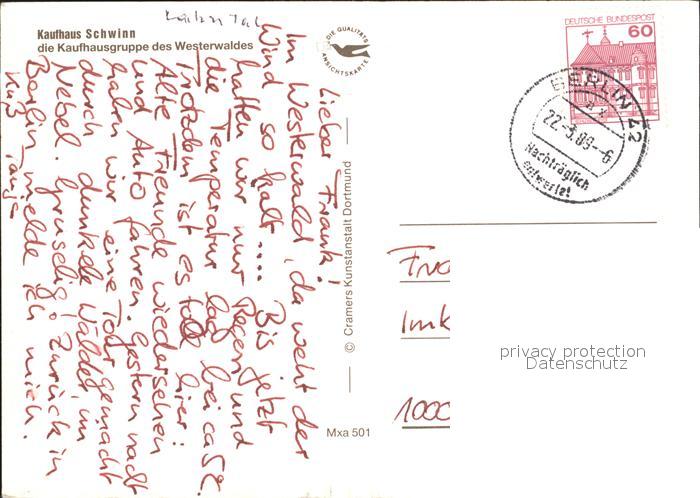 Kaufhaus Schwinn
die Kaufhausgruppe des Westerwaldes
DIE QUALITÄTS
ANSICHTSKARTE
Lieber Frank!
Im Westerwald, da weht der
Wind so kalt .... Bis jetzt
hatten wir nur Regen und
die Temperatur lag bei ca 5°C.
Trotzdem ist es toll hier:
Alte Freunde wiedersehen
und Auto fahren. Gestern nacht
haben wir eine Tour gemacht
durch dunkle Wälder, im
Nebel. Gruselig! Zurück in
Berlin melde ich mich.
Kuß
© Cramers Kunstanstalt Dortmund
Mxa 501
DEUTSCHE BUNDESPOST
60
BERLIN 42
22.-5.89.--6
Nachträglich
entwertet
Imk
1000
privacy protection
Datenschutz